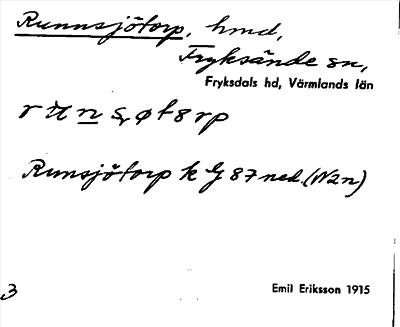 Runnsjötorp, hmd,
Fryksände sn,
Fryksdals hd, Värmlands län
Runsjötorp k G 87 ned. (N2n)
3
Emil Eriksson 1915